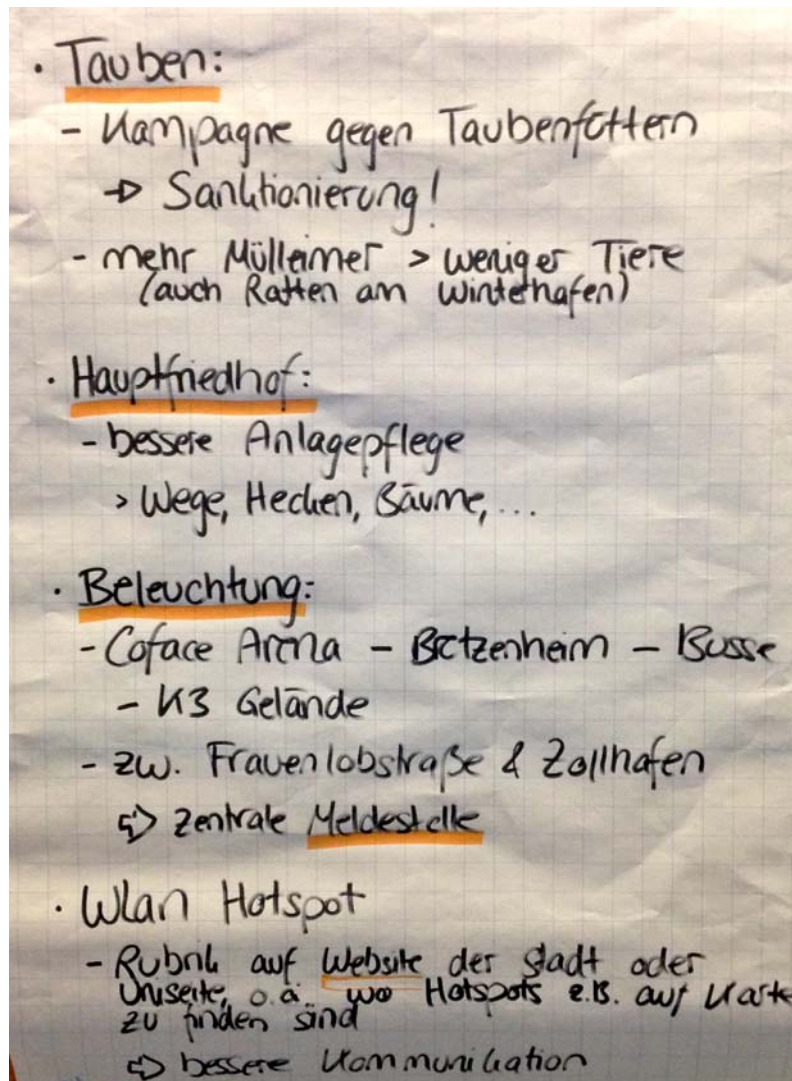 · Tauben:
- Kampagne gegen Taubenfüttern
→ Sanktionierung!
- mehr Mülleimer > weniger Tiere
(auch Ratten am Winterhafen)
· Hauptfriedhof:
- bessere Anlagepflege
> Wege, Hecken, Bäume, ...
· Beleuchtung:
- Coface Arena - Bretzenheim - Busse
- K3 Gelände
- zw. Frauenlobstraße & Zollhafen
⇨ zentrale Meldestelle
· Wlan Hotspot
- Rubrik auf Website der Stadt oder
Uniseite, o.ä. wo Hotspots z.B. auf Karte
zu finden sind
⇨ bessere Kommunikation